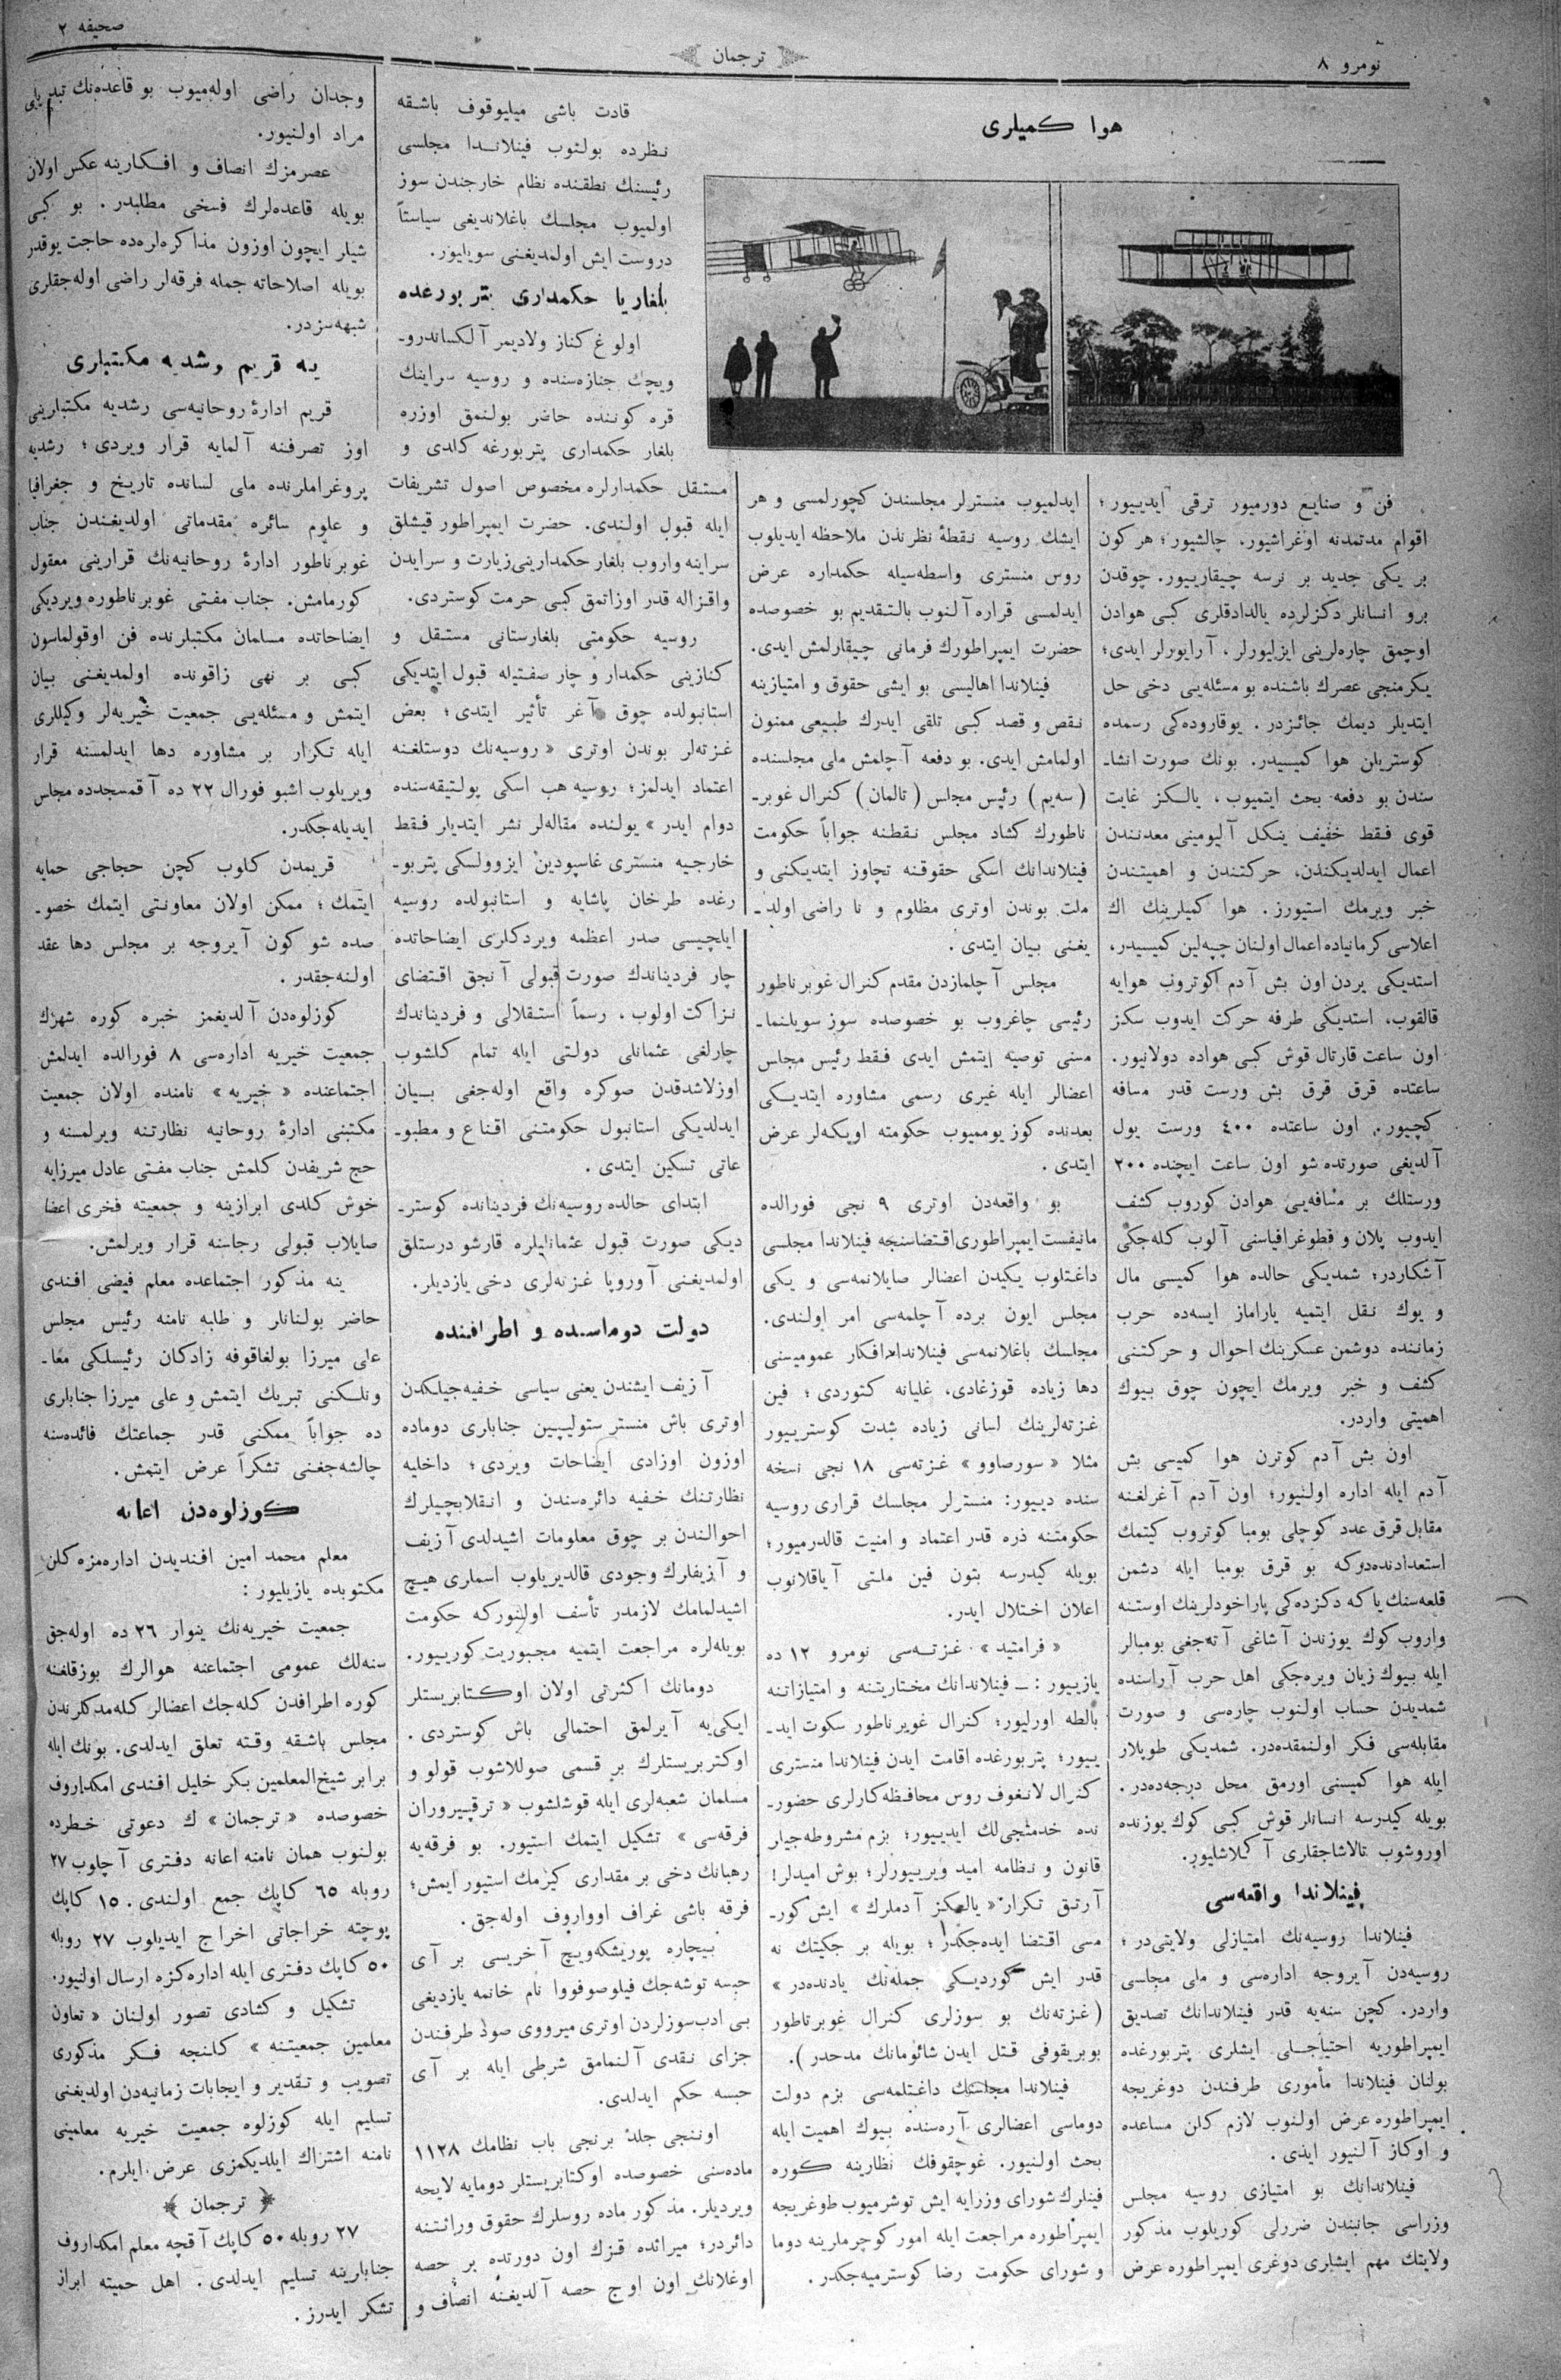 نومرو ٨
ترجمان
صحیفه ٢
هوا كمیلری
فن و صنایع دورمیور ترقی ایدییور ؛
اقوام مدتمدنه اوغراشیور، چالشیور ؛ هر كون
بر یكی جدید بر نرسه چیقارییور. چوقدن
برو انسانلر دكزلرده یالدادقلری كبی هوادن
اوچمق چاره‌لرینی ایزلیورلر ، آرایورلر ایدی؛
یكرمنجی عصرك باشنده بو مسئله‌یی دخی حل
ایتدیلر دیمك جائزدر . یوقاروده‌كی رسمده
كوستریلن هوا كمیسیدر. بونك صورت انشا-
سندن بو دفعه بحث ایتمیوب ، یالكز غایت
قوی فقط خفیف ینكل آلیومینی معدنندن
اعمال ایدلدیكندن، حركتندن و اهمیتندن
خبر ویرمك استیورز. هوا كمیلرینك اك
اعلاسی كرمانیاده اعمال اولنان چپه‌لین كمیسیدر،
استدیكی یردن اون بش آدم كوتروب هوایه
قالقوب، استدیكی طرفه حركت ایدوب سكز
اون ساعت قارتال قوش كبی هواده دولانیور.
ساعتده قرق قرق بش ورست قدر مسافه
كچیور. اون ساعتده ٤٠٠ ورست یول
آلدیغی صورتده شو اون ساعت ایچنده ٢٠٠
ورستلك بر مسافه‌یی هوادن كوروب كشف
ایدوب پلان و فطوغرافیاسنی آلوب كله‌جكی
آشكاردر؛ شمدیكی حالده هوا كمیسی مال
و یوك نقل ایتمیه یاراماز ایسه‌ده حرب
زماننده دوشمن عسكرینك احوال و حركتنی
كشف و خبر ویرمك ایچون چوق بیوك
اهمیتی واردر.
اون بش آدم كوترن هوا كمیسی بش
آدم ایله اداره اولنیور؛ اون آدم آغرلغنه
مقابل قرق عدد كوچلی بومبا كوتروب كیتمك
استعدادنده‌دركه بو قرق بومبا ایله دشمن
قلعه‌سنك یا كه دكزده‌كی پاراخودلرینك اوستنه
واروب كوك یوزندن آشاغی آته‌جغی بومبالر
ایله بیوك زیان ویره‌جكی اهل حرب آراسنده
شمدیدن حساب اولنوب چاره‌سی و صورت
مقابله‌سی فكر اولنمقده‌در. شمدیكی طوپلار
ایله هوا كمیسنی اورمق محل درجه‌ده‌در.
بویله كیدرسه انسانلر قوش كبی كوك یوزنده
اوروشوب تالاشاجقلری آكلاشلیور.
فینلاندا واقعه‌سی
فینلاندا روسیه‌نك امتیازلی ولایتی‌در ؛
روسیه‌دن آیروجه اداره‌سی و ملی مجلسی
واردر. كچن سنه‌یه قدر فینلاندانك تصدیق
ایمپراطوریه احتیاجلی ایشلری پتربورغده
بولنان فینلاندا مأموری طرفندن دوغریجه
ایمپراطوره عرض اولنوب لازم كلن مساعده
و اوكاز آلنیور ایدی .
فینلاندانك بو امتیازی روسیه مجلس
وزراسی جانبندن ضررلی كوریلوب مذكور
ولایتك مهم ایشلری دوغری ایمپراطوره عرض
ایدلمیوب منسترلر مجلسندن كچورلمسی و هر
ایشك روسیه نقطهٔ نظرندن ملاحظه ایدیلوب
روس منستری واسطه‌سیله حكمداره عرض
ایدلمسی قراره آلنوب بالتقدیم بو خصوصده
حضرت ایمپراطورك فرمانی چیقارلمش ایدی.
فینلاندا اهالیسی بو ایشی حقوق و امتیازینه
نقص و قصد كبی تلقی ایدرك طبیعی ممنون
اولمامش ایدی. بو دفعه آچلمش ملی مجلسنده
(سه‌یم) رئیس مجلس (تالمان) كنرال غوبر-
ناطورك كشاد مجلس نقطنه جواباً حكومت
فینلاندانك اسكی حقوقنه تجاوز ایتدیكنی و
ملت بوندن اوتری مظلوم و نا راضی اولد-
یغنی بیان ایتدی .
مجلس آچلمازدن مقدم كنرال غوبرناطور
رئیسی چاغروب بو خصوصده سوز سویلنما-
مسنی توصیه ایتمش ایدی فقط رئیس مجلس
اعضالر ایله غیری رسمی مشاوره ایتدیكی
بعدنده كوز یوممیوب حكومته اوپكه‌لر عرض
ایتدی .
بو واقعه‌دن اوتری ٩ نجی فورالده
مانیفست ایمپراطوری اقتضاسنجه فینلاندا مجلسی
داغتلوب یكیدن اعضالر صایلانمه‌سی و یكی
مجلس ایون برده آچلمه‌سی امر اولندی.
مجلسك باغلانمه‌سی فینلاندا افكار عمومیسنی
دها زیاده قوزغادی، غلیانه كتوردی ؛ فین
غزته‌لرینك لسانی زیاده شدت كوسترییور
مثلا « سورصاوو » غزته‌سی ١٨ نجی نسخه
سنده دییور: منسترلر مجلسك قراری روسیه
حكومتنه ذره قدر اعتماد و امنیت قالدرمیور؛
بویله كیدرسه بتون فین ملتی آیاقلانوب
اعلان اختلال ایدر.
« فرامتید » غزته‌سی نومرو ١٢ ده
یازییور : ــ فینلاندانك مختاریتنه و امتیازاتنه
بالطه اورلیور؛ كنرال غوبرناطور سكوت اید-
ییور؛ پتربورغده اقامت ایدن فینلاندا منستری
كنرال لانغوف روس محافظه‌كارلری حضور-
نده خدمتجی‌لك ایدییور؛ بزم مشروطه‌جیلر
قانون و نظامه امید ویرییورلر؛ بوش امیدلر!
آرتق تكرار « یالكز آدملرك » ایش كور-
مسی اقتضا ایده‌جكدر؛ بویله بر جكیتك نه
قدر ایش كوردیكی جمله‌نك یادنده‌در »
(غزته‌نك بو سوزلری كنرال غوبرناطور
بوبریقوفی قتل ایدن شائومانك مدحدر).
فینلاندا مجلسك داغتلمه‌سی بزم دولت
دوماسی اعضالری آره‌سنده بیوك اهمیت ایله
بحث اولنیور. غوچقوفك نظارینه كوره
فینلرك شورای وزرایه ایش توشرمیوب طوغریجه
ایمپراطوره مراجعت ایله امور كوچرملرینه دوما
و شورای حكومت رضا كوسترمیه‌جكدر.
قادت باشی میلیوقوف باشقه
نظرده بولنوب فینلاندا مجلسی
رئیسنك نطقنده نظام خارجندن سوز
اولمیوب مجلسك باغلاندیغی سیاستاً
دروست ایش اولمدیغنی سویلیور.
بلغاریا حكمداری پتربورغده
اولوغ كناز ولادیمر آلكساندرو-
ویچك جنازه‌سنده و روسیه سراینك
قره كوننده حاضر بولنمق اوزره
بلغار حكمداری پتربورغه كلدی و
مستقل حكمدارلره مخصوص اصول تشریفات
ایله قبول اولندی. حضرت ایمپراطور قیشلق
سراینه واروب بلغار حكمدارینی زیارت و سرایدن
واقزاله قدر اوزاتمق كبی حرمت كوستردی.
روسیه حكومتی بلغارستانی مستقل و
كنازینی حكمدار و چار صفتیله قبول ایتدیكی
استانبولده چوق آغر تأثیر ایتدی؛ بعض
غزته‌لر بوندن اوتری « روسیه‌نك دوستلغنه
اعتماد ایدلمز؛ روسیه هب اسكی پولتیقه‌سنده
دوام ایدر » یولنده مقاله‌لر نشر ایتدیلر فقط
خارجیه منستری غاسپودین ایزوولسكی پتربو-
رغده طرخان پاشایه و استانبولده روسیه
ایلچیسی صدر اعظمه ویردكلری ایضاحاتده
چار فردیناندك صورت قبولی آنجق اقتضای
نزاكت اولوب ، رسماً استقلالی و فردیناندك
چارلغی عثمانلی دولتی ایله تمام كلشوب
اوزلاشدقدن صوكره واقع اوله‌جغی بیان
ایدلدیكی استانبول حكومتنی اقناع و مطبو-
عاتی تسكین ایتدی .
ابتدای حالده روسیه‌نك فردیناندە كوستر-
دیكی صورت قبول عثمانلیلره قارشو درستلق
اولمدیغنی آوروپا غزته‌لری دخی یازدیلر.
دولت دوماسنده و اطرافنده
آزیف ایشندن یعنی سیاسی خفیه‌جیلكدن
اوتری باش منستر ستولیپین جنابلری دوماده
اوزون اوزادی ایضاحات ویردی؛ داخلیه
نظارتنك خفیه دائره‌سندن و انقلابچیلرك
احوالندن بر چوق معلومات اشیدلدی آزیف
و آزیفلرك وجودی قالدیریلوب اسملری هیچ
اشیدلمامك لازمدر تأسف اولنوركه حكومت
بویله‌لره مراجعت ایتمیه مجبوریت كورییور.
دومانك اكثرتی اولان اوكتابریستلر
ایكی‌یه آیرلمق احتمالی باش كوستردی .
اوكتربریستلرك بر قسمی صوللاشوب قولو و
مسلمان شعبه‌لری ایله قوشلشوب « ترقیپروران
فرقه‌سی » تشكیل ایتمك استیور. بو فرقه‌یه
رهبانك دخی بر مقداری كیرمك استیور ایمش؛
فرقه باشی غراف اوواروف اوله‌جق .
بیچاره پوریشكه‌ویچ آخریسی بر آی
حبسه توشه‌جك فیلوصوفووا نام خانمه یازدیغی
بی ادب سوزلردن اوتری میرووی صود طرفندن
جزای نقدی آلنمامق شرطی ایله بر آی
حبسه حكم ایدلدی.
اوننجی جلد برنجی باب نظامك ١١٢٨
ماده‌سنی خصوصده اوكتابریستلر دومایه لایحه
ویردیلر. مذكور ماده روسلرك حقوق وراثتنه
دائردر؛ میراثده قزك اون دورتده بر حصه
اوغلانك اون اوچ حصه آلدیغنه انصاف و
وجدان راضی اوله‌میوب بو قاعده‌نك تبدیلی
مراد اولنیور.
عصرمزك انصاف و افكارینه عكس اولان
بویله قاعده‌لرك فسخی مطلبدر. بو كبی
شیلر ایچون اوزون مذاكره‌لره‌ده حاجت یوقدر
بویله اصلاحاته جمله فرقه‌لر راضی اوله‌جقلری
شبهه‌سزدر.
یه قریم رشدیه مكتبلری
قریم ادارهٔ روحانیه‌سی رشدیه مكتبلرینی
اوز تصرفنه آلمایه قرار ویردی؛ رشدیه
پروغراملرنده ملی لسانده تاریخ و جغرافیا
و علوم سائره مقدماتی اولدیغندن جناب
غوبرناطور ادارهٔ روحانیه‌نك قرارینی معقول
كورمامش. جناب مفتی غوبرناطوره ویردیكی
ایضاحاتده مسلمان مكتبلرنده فن اوقولماسون
كبی بر نهی زاقونده اولمدیغنی بیان
ایتمش و مسئله‌یی جمعیت خیریه‌لر وكیللری
ایله تكرار بر مشاوره دها ایدلمسنه قرار
ویریلوب اشبو فورال ٢٢ ده آقمسجدده مجلس
ایدیله‌جكدر.
قریمدن كلوب كچن حجاجی حمایه
ایتمك ؛ ممكن اولان معاونتی ایتمك خصو-
صده شو كون آیروجه بر مجلس دها عقد
اولنه‌جقدر .
كوزلوه‌دن آلدیغمز خبره كوره شهرك
جمعیت خیریه اداره‌سی ٨ فورالده ایدلمش
اجتماعنده « خیریه » نامنده اولان جمعیت
مكتبنی ادارهٔ روحانیه نظارتنه ویرلمسنه و
حج شریفدن كلمش جناب مفتی عادل میرزایه
خوش كلدی ابرازینه و جمعیته فخری اعضا
صایلاب قبولی رجاسنه قرار ویرلمش.
ینه مذكور اجتماعده معلم فیضی افندی
حاضر بولنانلر و طلبه نامنه رئیس مجلس
علی میرزا بولغاقوفه زادكان رئیسلكی معا-
ونلكنی تبریك ایتمش و علی میرزا جنابلری
ده جواباً ممكنی قدر جماعتك فائده‌سنه
چالشه‌جغنی تشكراً عرض ایتمش.
كوزلوه‌دن اعانه
معلم محمد امین افندیدن اداره‌مزه كلن
مكتوبده یازیلیور :
جمعیت خیریه‌نك ینوار ٢٦ ده اوله‌جق
سنه‌لك عمومی اجتماعنه هوالرك بوزقلغنه
كوره اطرافدن كله‌جك اعضالر كله‌مدكلرندن
مجلس باشقه وقته تعلق ایدلدی. بونك ایله
برابر شیخ‌المعلمین بكر خلیل افندی امكداروف
خصوصده « ترجمان » ك دعوتی خطرده
بولنوب همان نامنه اعانه دفتری آچلوب ٢٧
روبله ٦٥ كاپك جمع اولندی. ١٥ كاپك
پوچته خراجاتی اخراج ایدیلوب ٢٧ روبله
٥٠ كاپك دفتری ایله اداره‌كزه ارسال اولنیور.
تشكیل و كشادی تصور اولنان « تعاون
معلمین جمعیتنه » كلنجه فكر مذكوری
تصویب و تقدیر و ایجابات زمانیه‌دن اولدیغنی
تسلیم ایله كوزلوه جمعیت خیریه معلمینی
نامنه اشتراك ایلدیكمزی عرض ایلرم.
﴿ ترجمان ﴾
٢٧ روبله ٥٠ كاپك آقچه معلم امكداروف
جنابلرینه تسلیم ایدلدی. اهل حمیته ابراز
تشكر ایدرز .